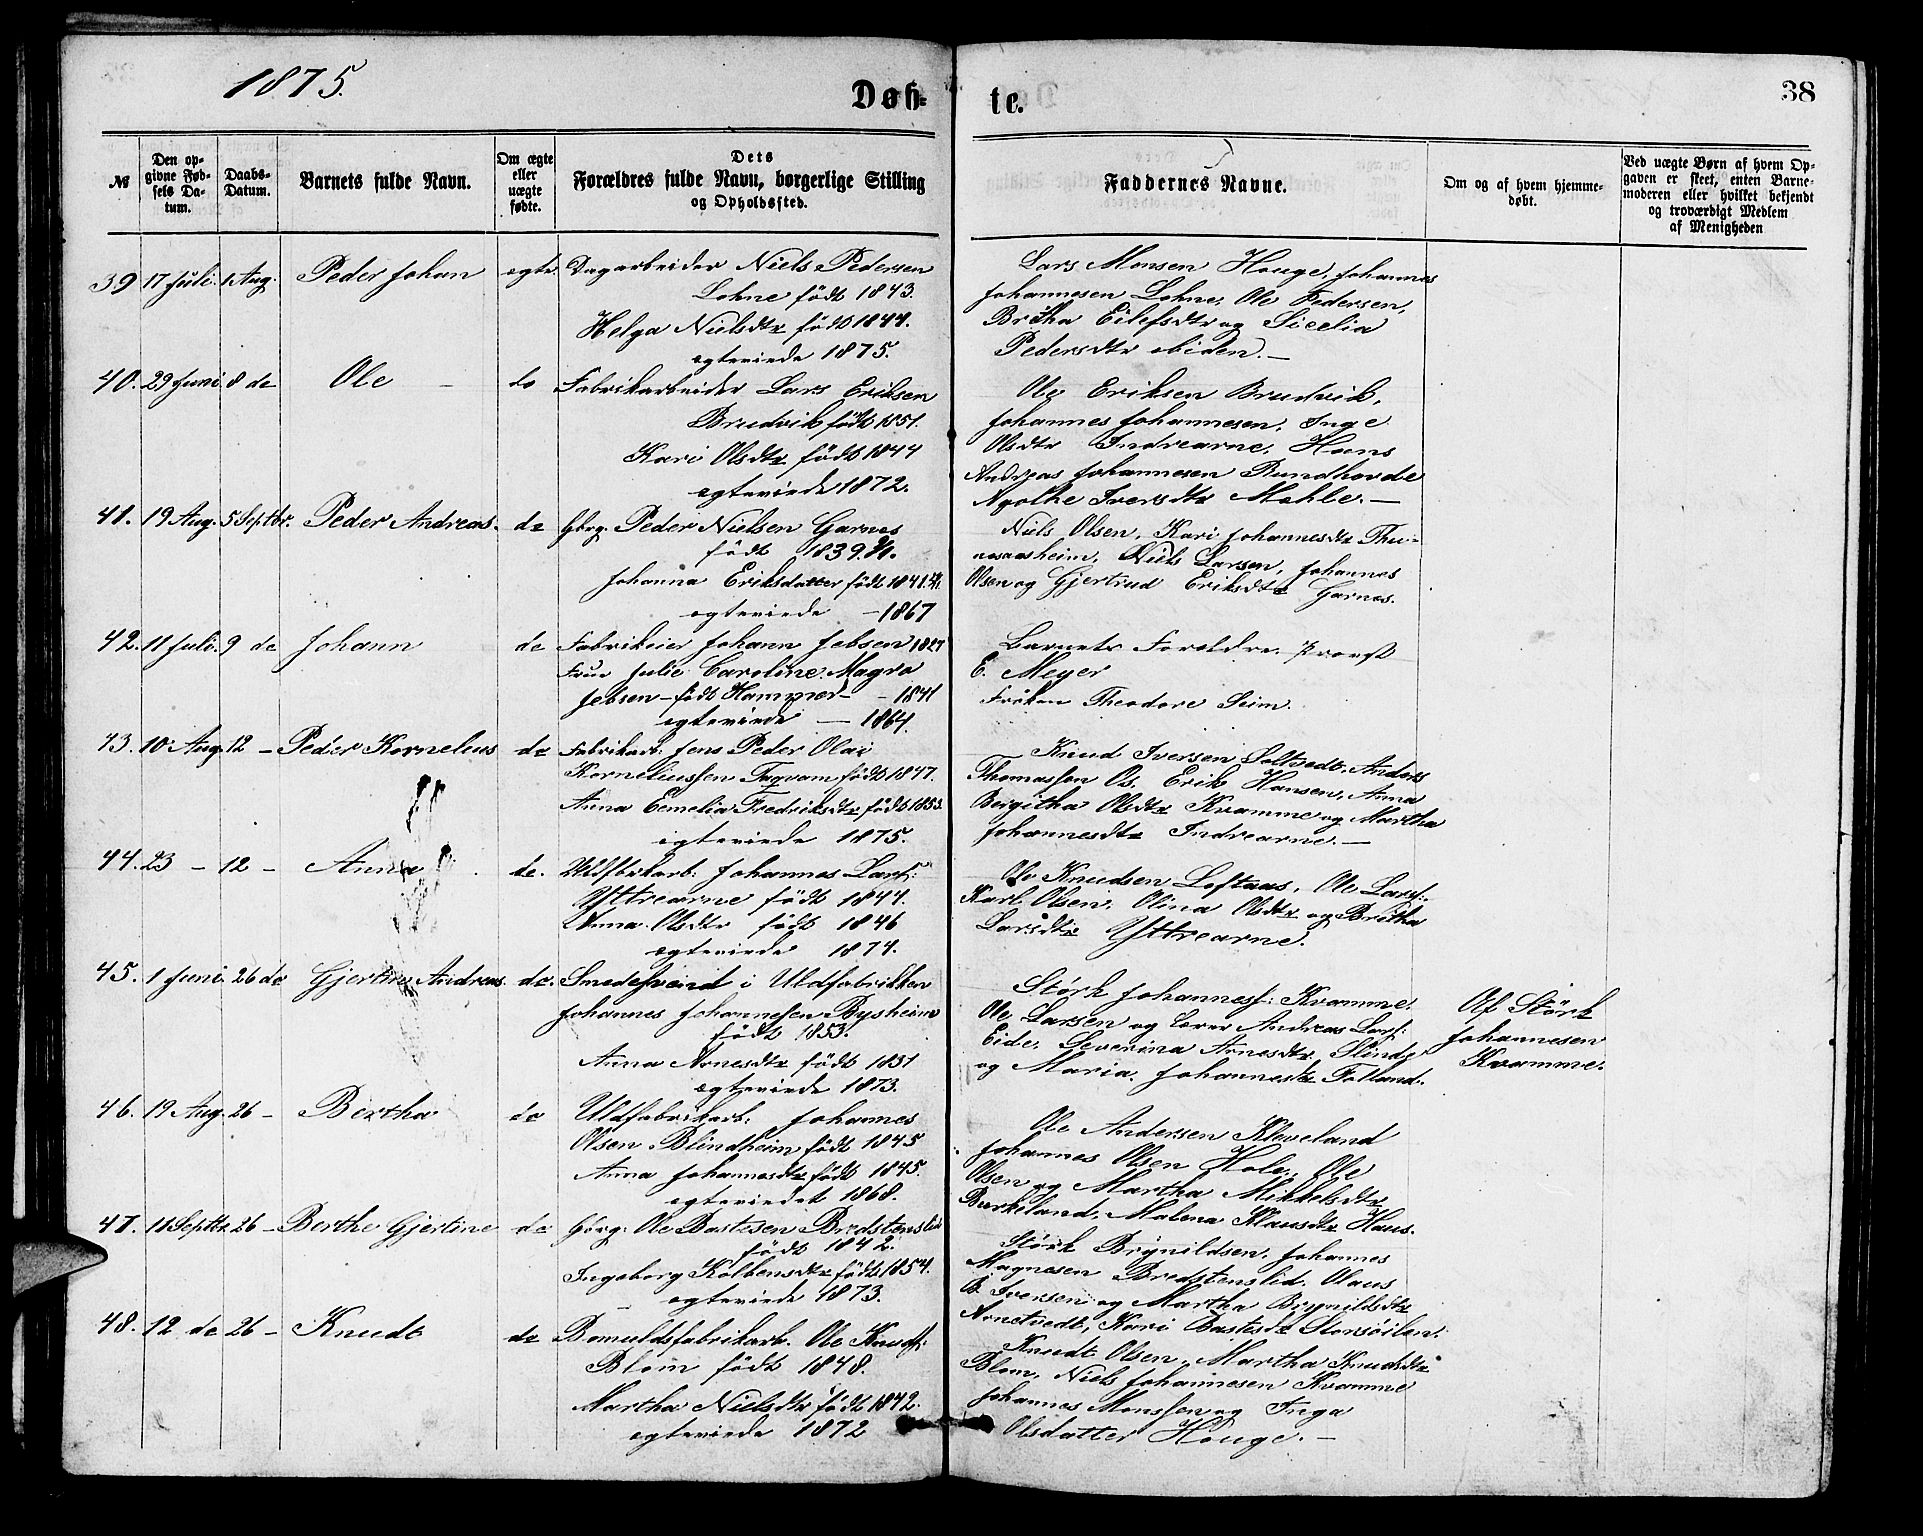 1875.
Døb-
te.
38
№
Den op-
givne Fød-
sels Da-
tum.
Daabs-
Datum.
Barnets fulde Navn.
Om ægte
eller
uægte
fødte.
Dets
Forældres fulde Navn, borgerlige Stilling
og Opholdssted.
Faddernes Navne.
Om og af hvem hjemme-
døbt.
Ved uægte Børn af hvem Op-
gaven er skeet, enten Barne-
moderen eller hvilket bekjendt
og troværdigt Medlem
af Menigheden
39 17 Juli. 1 Aug. Peder Johan ægte. Dagarbeider Niels Pedersen
Lohne født 1843.
Helga Nielsdtr født 1844.
ægteviede 1875.
Lars Monsen Houge, Johannes
Johannesen Lohne, Ole Pedersen,
Britha Eilefsdtr og Sicelia
Pedersdtr ibiden. —
40. 29 Juni 8 do Ole do Fabrikarbeider Lars Eriksen
Brudvik født 1851.
Kari Olsdtr født 1844
ægteviede 1872.
Ole Eriksen Brudvik,
Johannes Johannesen, Inge
Olsdtr Indrearne, Hans
Andreas Johannesen Rundhovde
Agothe Iversdtr Mohle. —
41. 19 Aug. 5 Septbr. Peder Andreas. do Gbrg. Peder Nielsen Garnes
født 1839
Johanna Eriksdatter født 1841
ægteviede — 1867
Niels Olsen, Kari Johannesdtr
Niels Larsen, Johannes
Olsen og Gjertrud Eriksdtr Garnes.
42. 11 Juli. 9 do Johann do Fabrikeier Johann Jebsen 1827
Frue Julie Caroline Magra
Jebsen – født Hammer – – 1841
ægteviede — 1864.
Barnets Forældre, Provst
E. Meyer
Frøken Theodore Seim.
43. 10 Aug. 12 – Peder Kornelius do Fabrikarb: Jens Peder Olai
Korneliussen Taqvam født 1847.
Anna Eemelia Fredriksdtr født 1853
ægteviede 1875.
Knud Iversen Soltvedt, Anders
Thomassen Os. Erik Hansen, Anna
Bergitha Olsdtr Kvamme og Martha
Johannesdtr Indrearne. —
44. 23 – 12 – Anna do. Uldfbrkarb: Johannes Lars:
Yttrearne født 1844.
Anna Olsdtr født 1846
ægteviede 1874.
Ole Knudsen Loftaas, Ole Lars:
Karl Olsen, Olina Olsdtr og Britha
Larsdtr Yttrearne.
45. 1 Juni. 26 do Gjertin Andreas do. Smedesvend i Uldfabrikken
Johannes Johannesen Bysheim
født 1853.
Anna Arnesdtr født 1851
ægteviede 1873.
Størk Johanness: Kvamme.
Ole Larsen og Lærer Andreas Lars:
Eide, Severina Arnesdtr Slinde
og Maria Johannesdtr Folland.
Af Størk
Johannesen
Kvamme.
46. 19 Aug. 26 – Bertha do Uldfabrikarb: Johannes
Olsen Blindheim født 1845
Anna Johannesdtr født 1845.
ægteviedet 1868.
Ole Andersen Kleveland
Johannes Olsen Hole, Ole
Olsen og Martha Mikkelsdtr
Burkeland. Malena Klausdtr Haus.
47. 11 Septbr 26 – Berthe Gjertine do Gbrg: Ole Bastesen Bredstenslid
født 1842.
Ingeborg Kolbensdtr født 1854.
ægteviede 1873.
Størk Brynildsen, Johannes
Magnesen Bredstenslid, Olaus
B. Iversen og Martha Brynildsdtr
Arnetvedt, Kari Bastesdtr Storsøilen.
48. 12 do 26 – Knudt do Bomuldsfabrikarb. Ole Knuds:
Blom født 1848.
Martha Nielsdtr født 1842.
ægteviede 1872
Knudt Olsen, Martha Knudsdtr
Blom, Niels Johannesen Kvamme
Johannes Monssen og Inga
Olsdatter Houge. —